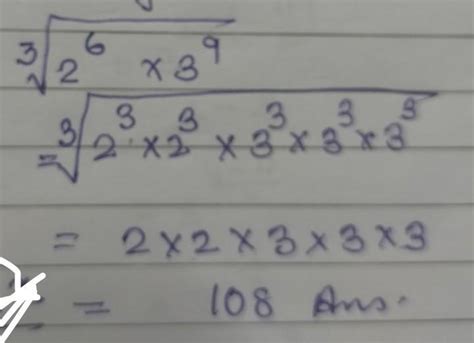 ∛(2⁶ × 3⁹)
= ∛(2³ × 2³ × 3³ × 3³ × 3³)
= 2 × 2 × 3 × 3 × 3
= 108 Ans.